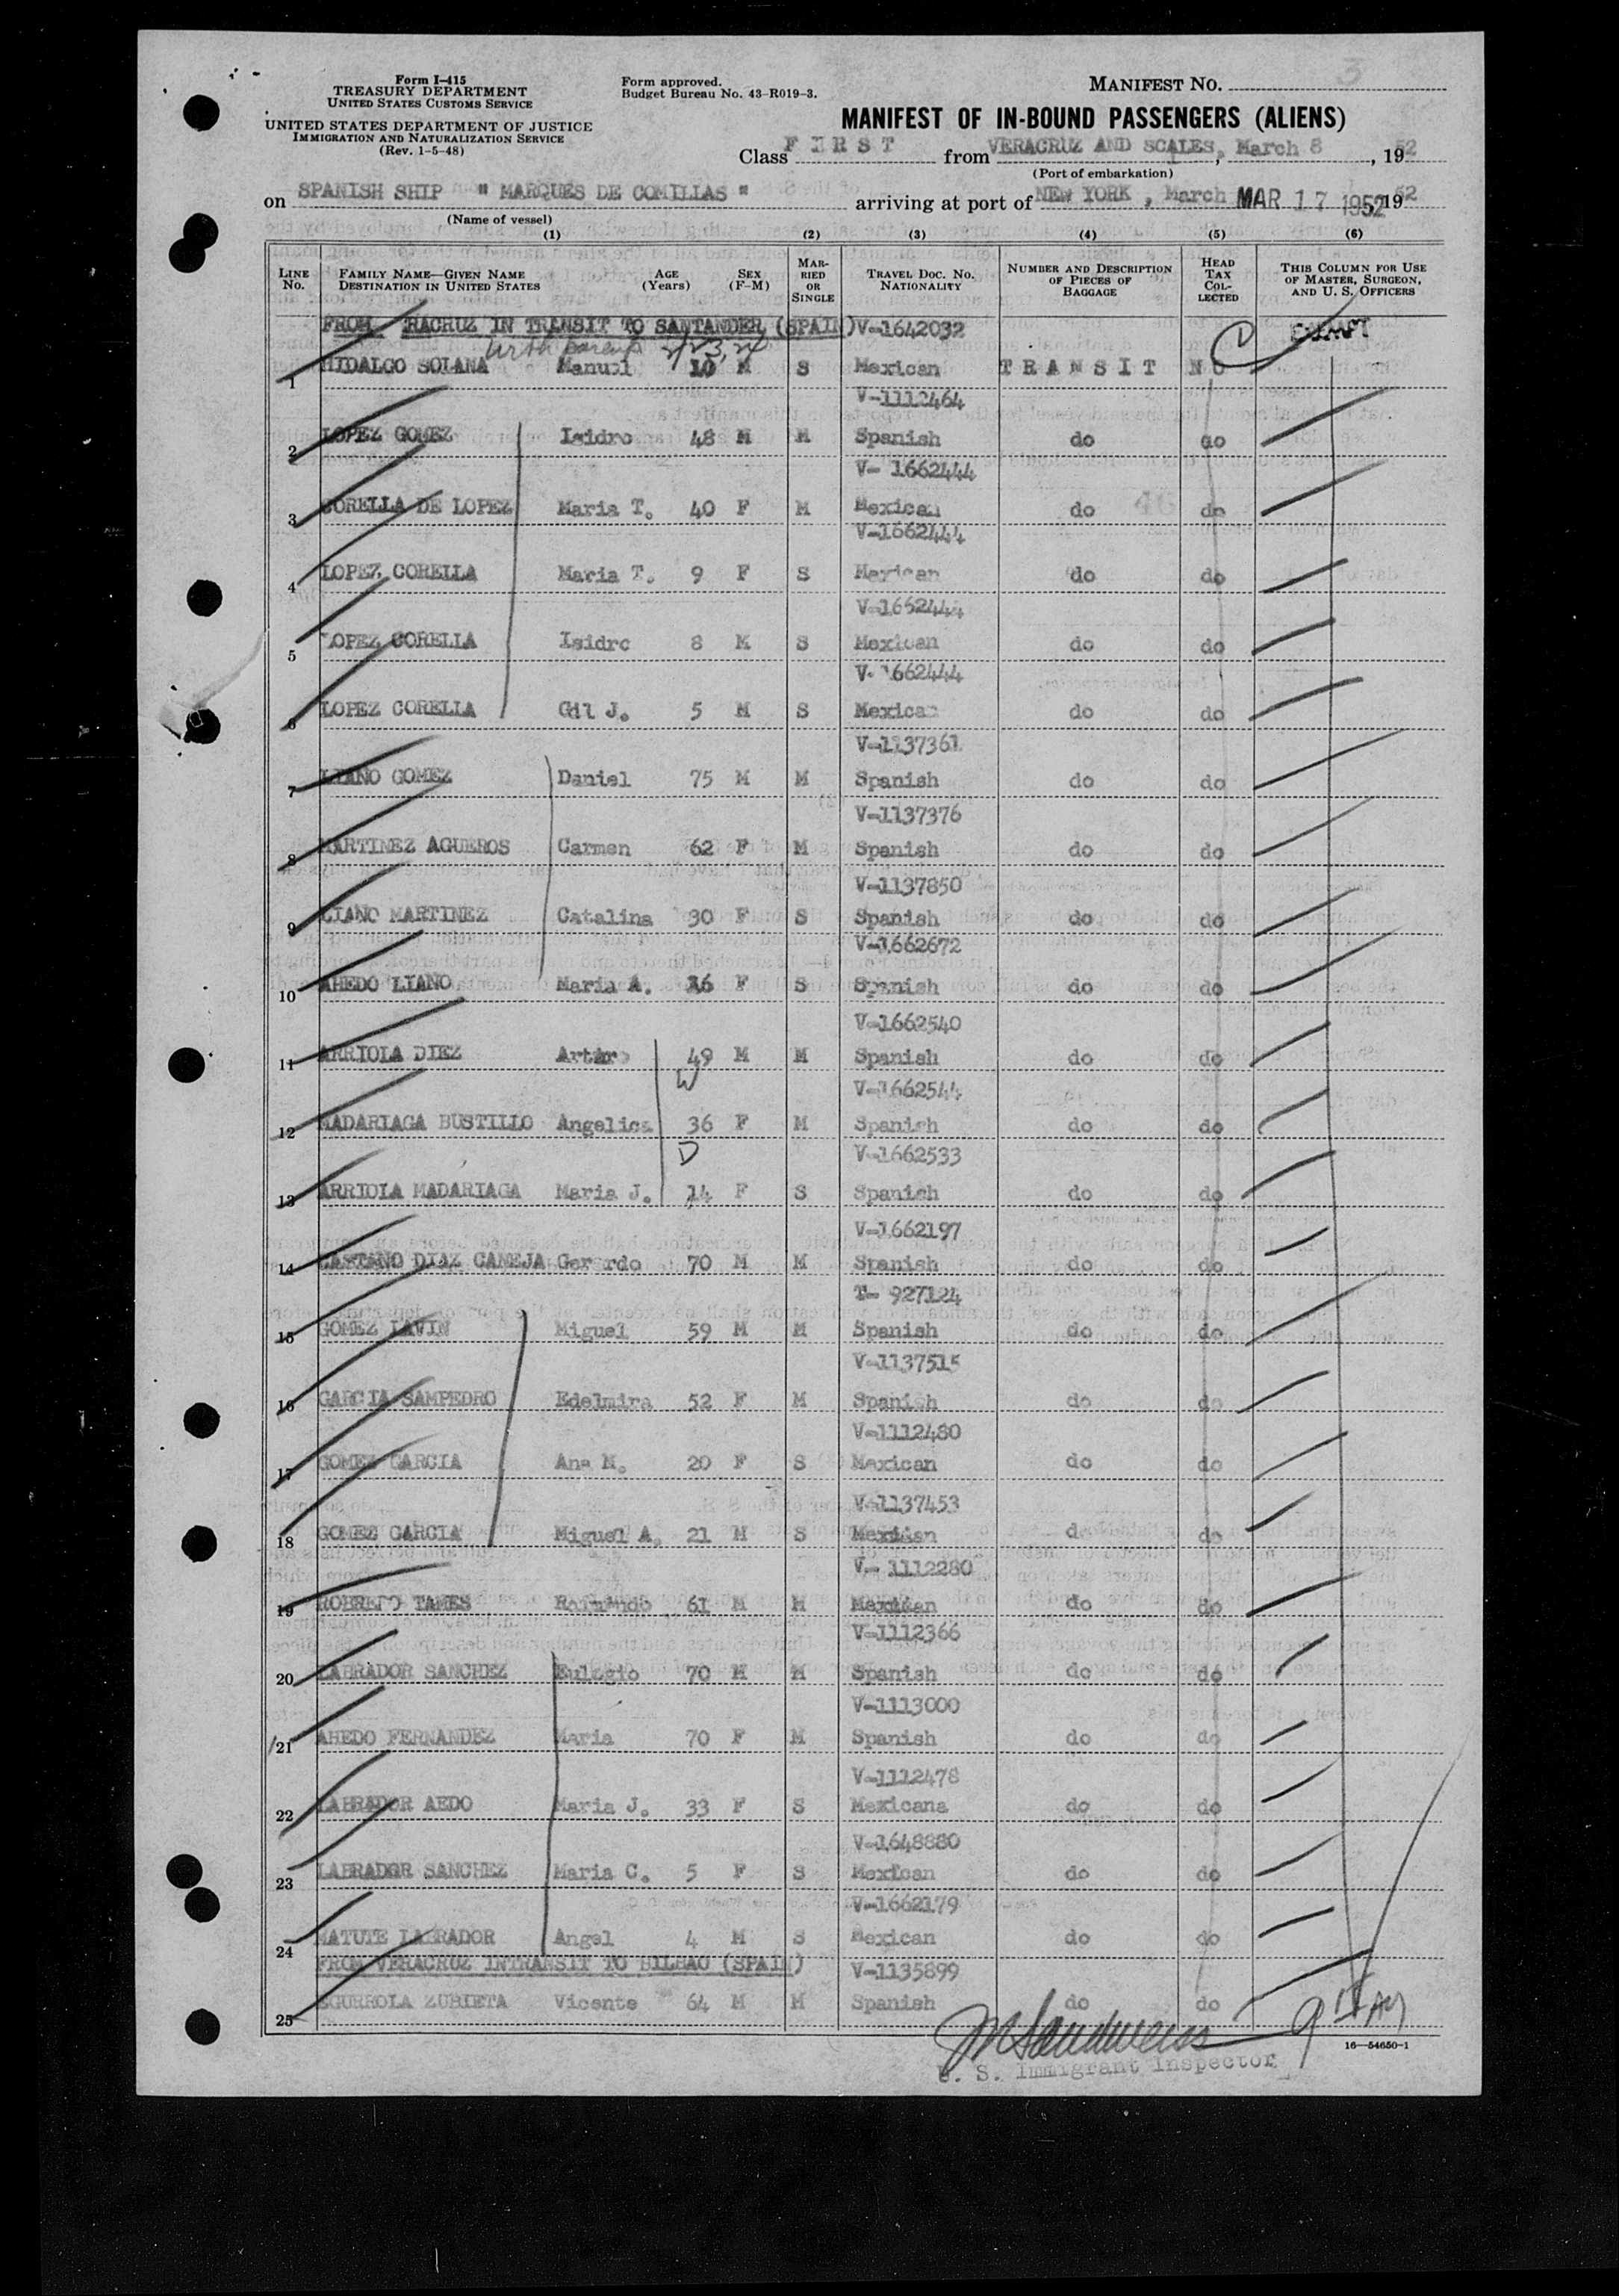 3
Form I-415
TREASURY DEPARTMENT
UNITED STATES CUSTOMS SERVICE
UNITED STATES DEPARTMENT OF JUSTICE
IMMIGRATION AND NATURALIZATION SERVICE
(Rev. 1-5-48)
Form approved.
Budget Bureau No. 43-R019-3.
MANIFEST NO.
MANIFEST OF IN-BOUND PASSENGERS (ALIENS)
Class F I R S T from VERACRUZ AND SCALES, March 8, 1952
(Port of embarkation)
on SPANISH SHIP " MARQUES DE COMILLAS " arriving at port of NEW YORK, March MAR 17 1952 1952
(Name of vessel)
(1) (2) (3) (4) (5) (6)
LINE No. FAMILY NAME—GIVEN NAME DESTINATION IN UNITED STATES AGE (Years) SEX (F-M) MARRIED OR SINGLE TRAVEL DOC. NO. NATIONALITY NUMBER AND DESCRIPTION OF PIECES OF BAGGAGE HEAD TAX COLLECTED THIS COLUMN FOR USE OF MASTER, SURGEON, AND U. S. OFFICERS
FROM RACRUZ IN TRANSIT TO SANTANDER (SPAIN) V-1642032 EXEMPT
with parents
1 HIDALGO SOLANA Manuel 10 M S Mexican T R A N S I T NO
V-1112464
2 LOPEZ GOMEZ Isidro 48 M M Spanish do do
V- 1662444
3 CORELLA DE LOPEZ Maria T. 40 F M Mexican do do
V-1662444
4 LOPEZ CORELLA Maria T. 9 F S Mexican do do
V-1662444
5 LOPEZ CORELLA Isidro 8 M S Mexican do do
V-1662444
6 LOPEZ CORELLA Gil J. 5 M S Mexican do do
V-1137361
7 LIANO GOMEZ Daniel 75 M M Spanish do do
V-1137376
8 MARTINEZ AGUEROS Carmen 62 F M Spanish do do
V-1137850
9 LIANO MARTINEZ Catalina 30 F S Spanish do do
V-1662672
10 AHEDO LIANO Maria A. 16 F S Spanish do do
V-1662540
11 ARRIOLA DIEZ Arturo 49 M M Spanish do do
W V-1662544
12 MADARIAGA BUSTILLO Angelica 36 F M Spanish do do
D V-1662533
13 ARRIOLA MADARIAGA Maria J. 14 F S Spanish do do
V-1662197
14 CASTANO DIAZ CANEJA Gerardo 70 M M Spanish do do
T- 927124
15 GOMEZ LAVIN Miguel 59 M M Spanish do do
V-1137515
16 GARCIA SAMPEDRO Edelmira 52 F M Spanish do do
V-1112480
17 GOMEZ GARCIA Ana M. 20 F S Mexican do do
V-1137453
18 GOMEZ GARCIA Miguel A. 21 M S Mexican do do
V- 1112280
19 ROBREDO TAMES Raimundo 61 M M Mexican do do
V-1112366
20 LABRADOR SANCHEZ Eulogio 70 M M Spanish do do
V-1113000
21 AHEDO FERNANDEZ Maria 70 F M Spanish do do
V-1112478
22 LABRADOR AEDO Maria J. 33 F S Mexicana do do
V-1648880
23 LABRADOR SANCHEZ Maria C. 5 F S Mexican do do
V-1662179
24 MATUTE LABRADOR Angel 4 M S Mexican do do
FROM VERACRUZ INTRANSIT TO BILBAO (SPAIN) V-1135899
25 EGURROLA ZUBIETA Vicente 64 M M Spanish do do
M Sandweiss
U. S. Immigrant Inspector
16—54650-1